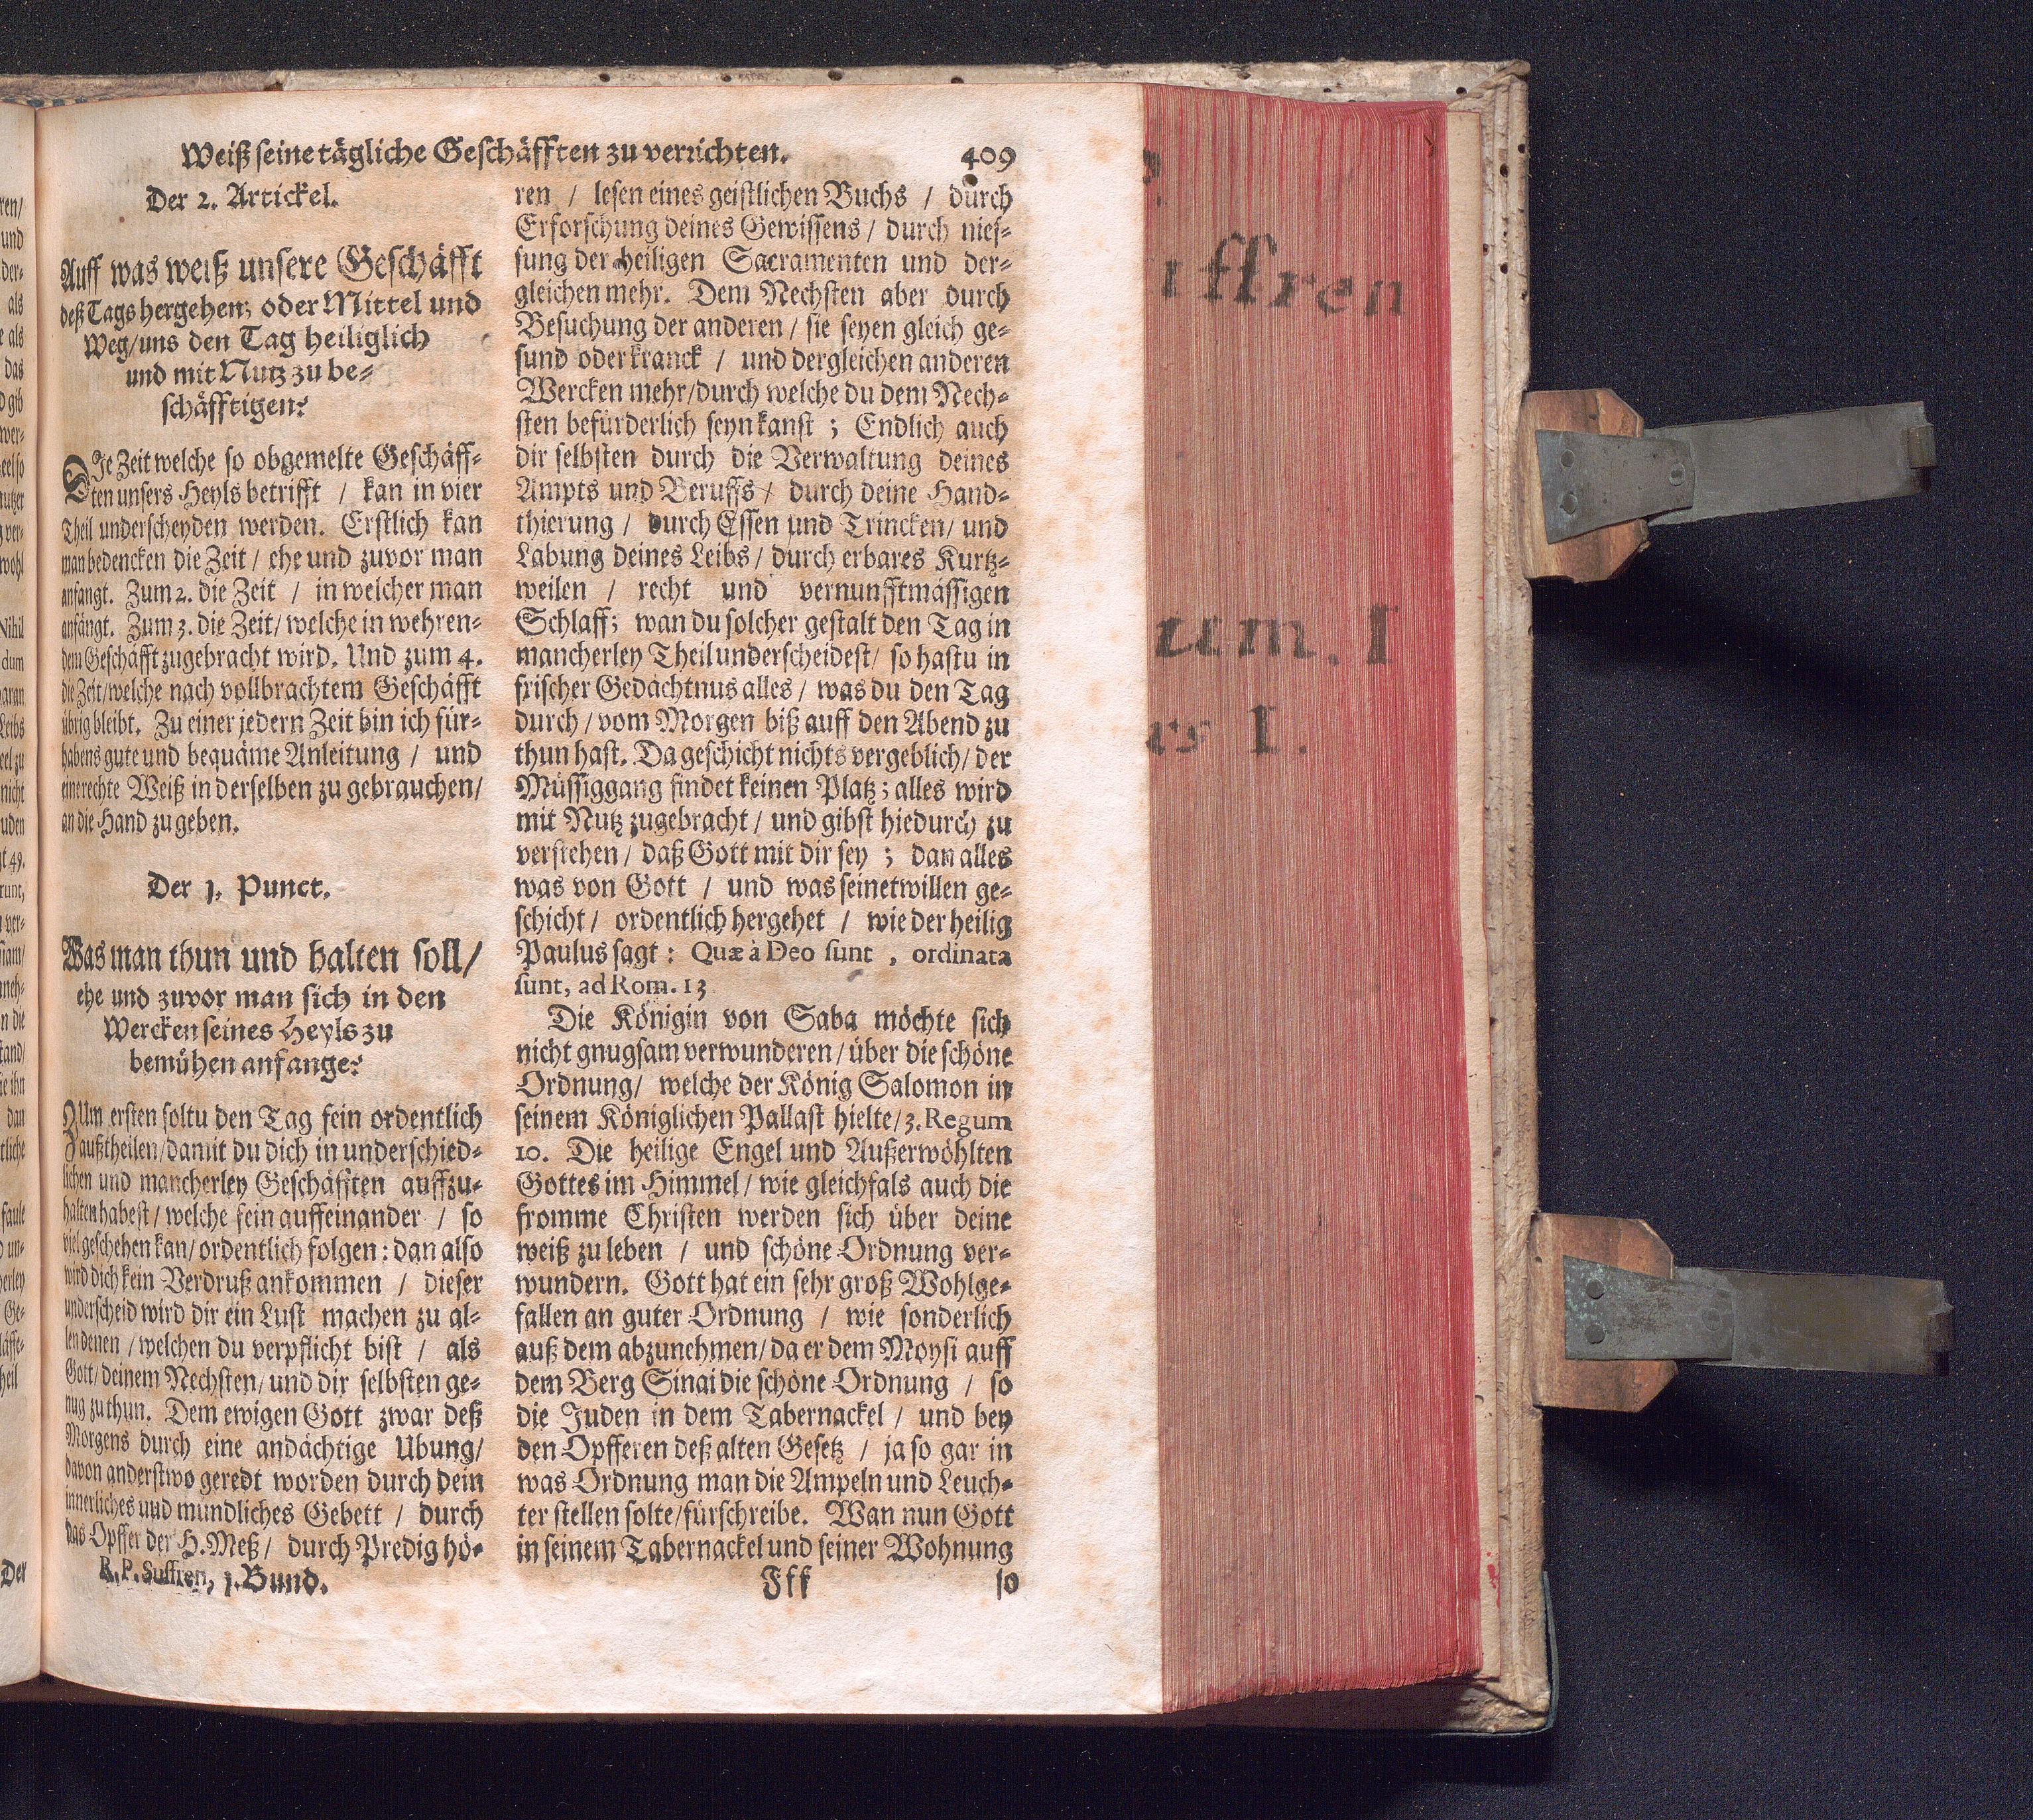 Weiß seine tägliche Geschäfften zu verrichten. 409
Der 2. Artickel.
Auff was weiß unsere Geschäfft
deß Tags hergehen; oder Mittel und
Weg/uns den Tag heiliglich
und mit Nutz zu be-
schäfftigen?
DIe Zeit welche so obgemelte Geschäff-
ten unsers Heyls betrifft / kan in vier
Theil underscheyden werden. Erstlich kan
man bedencken die Zeit / ehe und zuvor man
anfangt. Zum 2. die Zeit / in welcher man
anfängt. Zum 3. die Zeit / welche in wehren-
dem Geschäfft zugebracht wird. Und zum 4.
die Zeit/welche nach vollbrachtem Geschäfft
übrig bleibt. Zu einer jedern Zeit bin ich für-
habens gute und bequäme Anleitung / und
eine rechte Weiß in derselben zu gebrauchen/
an die Hand zu geben.
Der 1. Punct.
Was man thun und halten soll/
ehe und zuvor man sich in den
Wercken seines Heyls zu
bemühen anfange?
ZUm ersten soltu den Tag fein ordentlich
außtheilen/damit du dich in underschied-
lichen und mancherley Geschäfften auffzu-
halten habest / welche fein auffeinander / so
viel geschehen kan/ ordentlich folgen: dan also
wird dich kein Verdruß ankommen / dieser
underscheid wird dir ein Lust machen zu al-
len denen / welchen du verpflicht bist / als
Gott/ deinem Nechsten/ und dir selbsten ge-
nug zu thun. Dem ewigen Gott zwar deß
Morgens durch eine andächtige Ubung/
davon anderstwo geredt worden durch dein
innerliches und mundliches Gebett / durch
das Opffer der H. Meß/ durch Predig hö-
R. P. Suffren, 1. Bund.
ren / lesen eines geistlichen Buchs / durch
Erforschung deines Gewissens / durch nies-
sung der heiligen Sacramenten und der-
gleichen mehr. Dem Nechsten aber durch
Besuchung der anderen / sie seyen gleich ge-
sund oder kranck / und dergleichen anderen
Wercken mehr/durch welche du dem Nech-
sten befürderlich seyn kanst ; Endlich auch
dir selbsten durch die Verwaltung deines
Ampts und Beruffs / durch deine Hand-
thierung / durch Essen und Trincken/ und
Labung deines Leibs / durch erbares Kurtz-
weilen / recht und vernunfftmässigen
Schlaff; wan du solcher gestalt den Tag in
mancherley Theil underscheidest/ so hastu in
frischer Gedächtnus alles / was du den Tag
durch / vom Morgen biß auff den Abend zu
thun hast. Da geschicht nichts vergeblich/ der
Müssiggang findet keinen Platz; alles wird
mit Nutz zugebracht / und gibst hiedurch zu
verstehen / daß Gott mit dir sey ; dan alles
was von Gott / und was seinetwillen ge-
schicht / ordentlich hergehet / wie der heilig
Paulus sagt: Quæ à Deo sunt , ordinata
sunt, ad Rom. 13
Die Königin von Saba möchte sich
nicht gnugsam verwunderen / über die schöne
Ordnung/ welche der König Salomon in
seinem Königlichen Pallast hielte/ 3. Regum
10. Die heilige Engel und Außerwöhlten
Gottes im Himmel / wie gleichfals auch die
fromme Christen werden sich über deine
weiß zu leben / und schöne Ordnung ver-
wundern. Gott hat ein sehr groß Wohlge-
fallen an guter Ordnung / wie sonderlich
auß dem abzunehmen/ da er dem Moysi auff
dem Berg Sinai die schöne Ordnung / so
die Juden in dem Tabernackel / und bey
den Opfferen deß alten Gesetz / ja so gar in
was Ordnung man die Ampeln und Leuch-
ter stellen solte/fürschreibe. Wan nun Gott
in seinem Tabernackel und seiner Wohnung
Fff so
ffren
um. I
rs I.